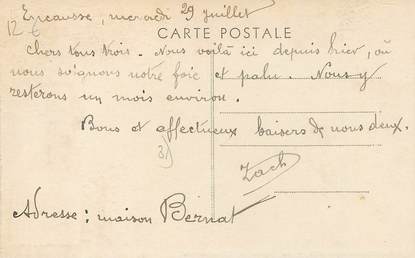 Encausse, mercredi 29 juillet
12 €
CARTE POSTALE
Chers tous trois. Nous voilà ici depuis hier, où
nous soignons notre foie et palu. Nous y
resterons un mois environ.
Bons et affectueux baisers de nous deux.
Zach
Adresse : maison Bernat